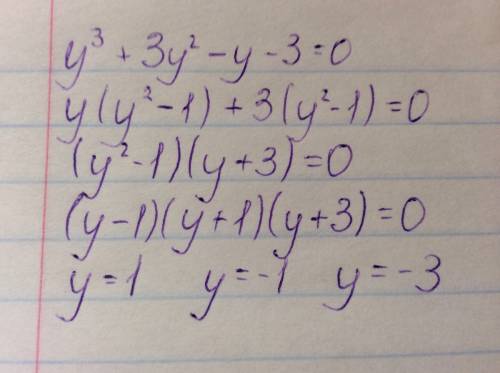 y³ + 3y² - y - 3 = 0
y(y² - 1) + 3(y² - 1) = 0
(y² - 1)(y + 3) = 0
(y - 1)(y + 1)(y + 3) = 0
y = 1 y = -1 y = -3